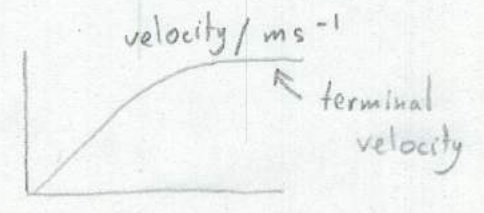 velocity / ms⁻¹
terminal
velocity